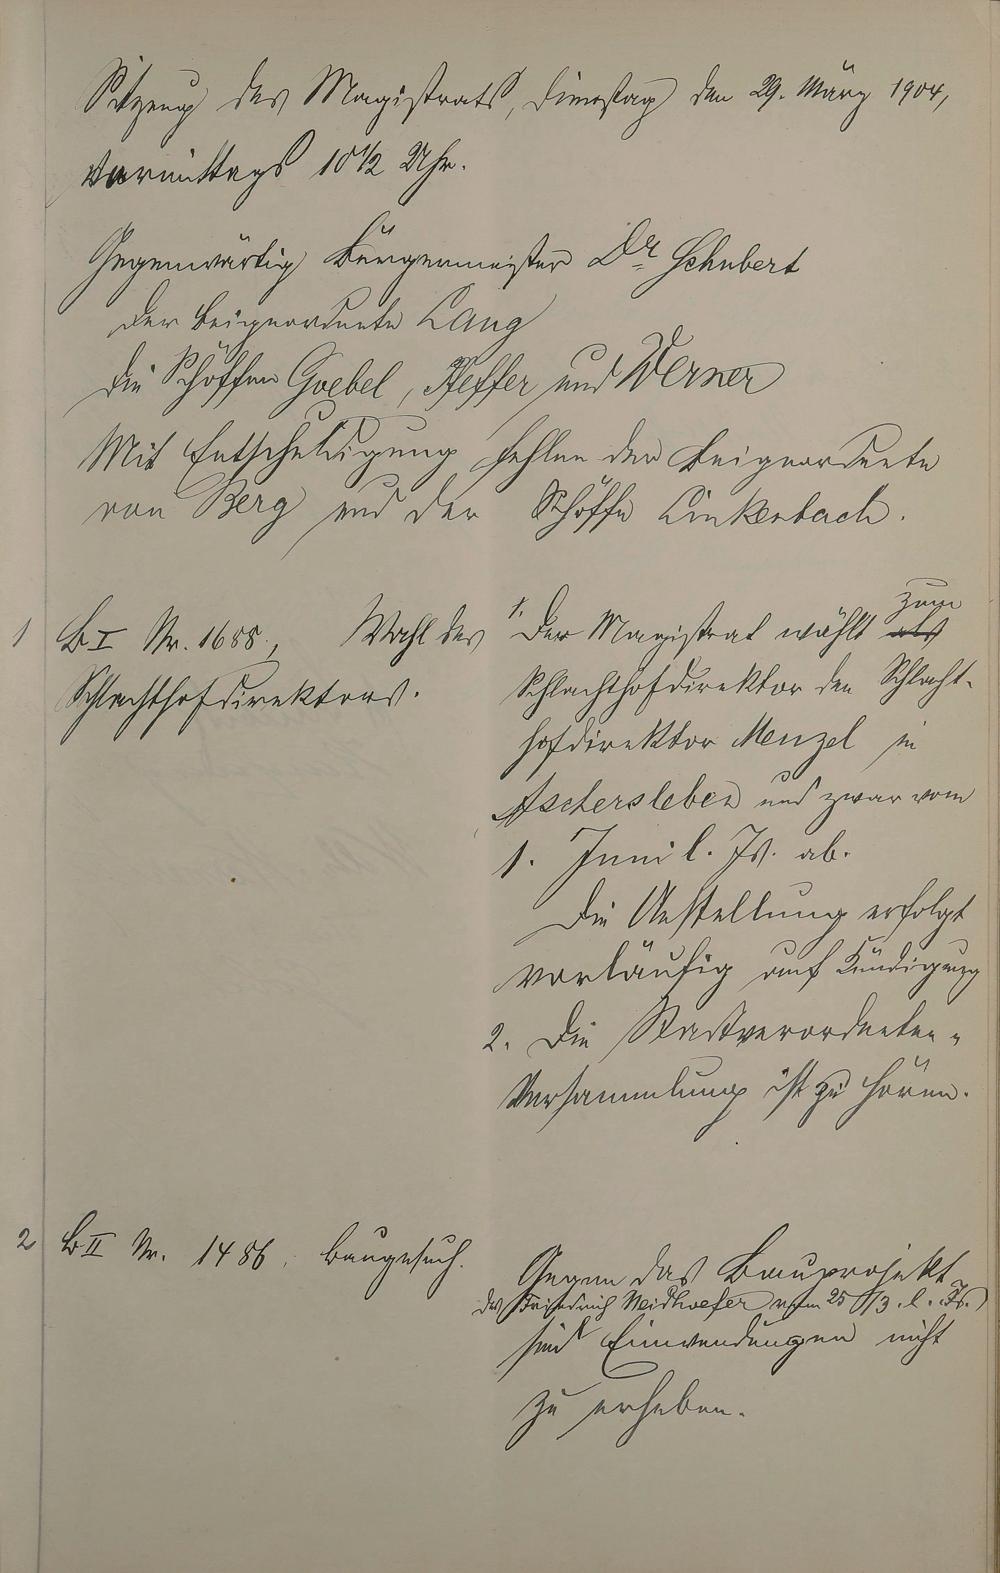 Sitzung des Magistrats, Dienstag den 29. März 1904,
Vormittags 10 1/2 Uhr.
Gegenwärtig Bürgermeister Dr Schubert
der Beigeordnete Lang
die Schöffen Goebel, Pfeffer und Werner
Mit Entschuldigung fehlen der Beigeordnete
von Berg und der Schöffe Linkenbach.
1 B I Nr. 1688, Wahl des
Schlachthofdirektors.
1. Der Magistrat wählt als zum
Schlachthofdirektor den Schlacht-
hofdirektor Menzel in
Aschersleben und zwar vom
1. Juni l. Js. ab.
Die Anstellung erfolgt
vorläufig auf Kündigung
2. Die Stadtverordneten-
Versammlung ist zu hören.
2 B II Nr. 1486. Baugesuch.
Gegen das Bauprojekt
des Friedrich Neidhoefer vom 25/3. l. Js.
sind Einwendungen nicht
zu erheben.